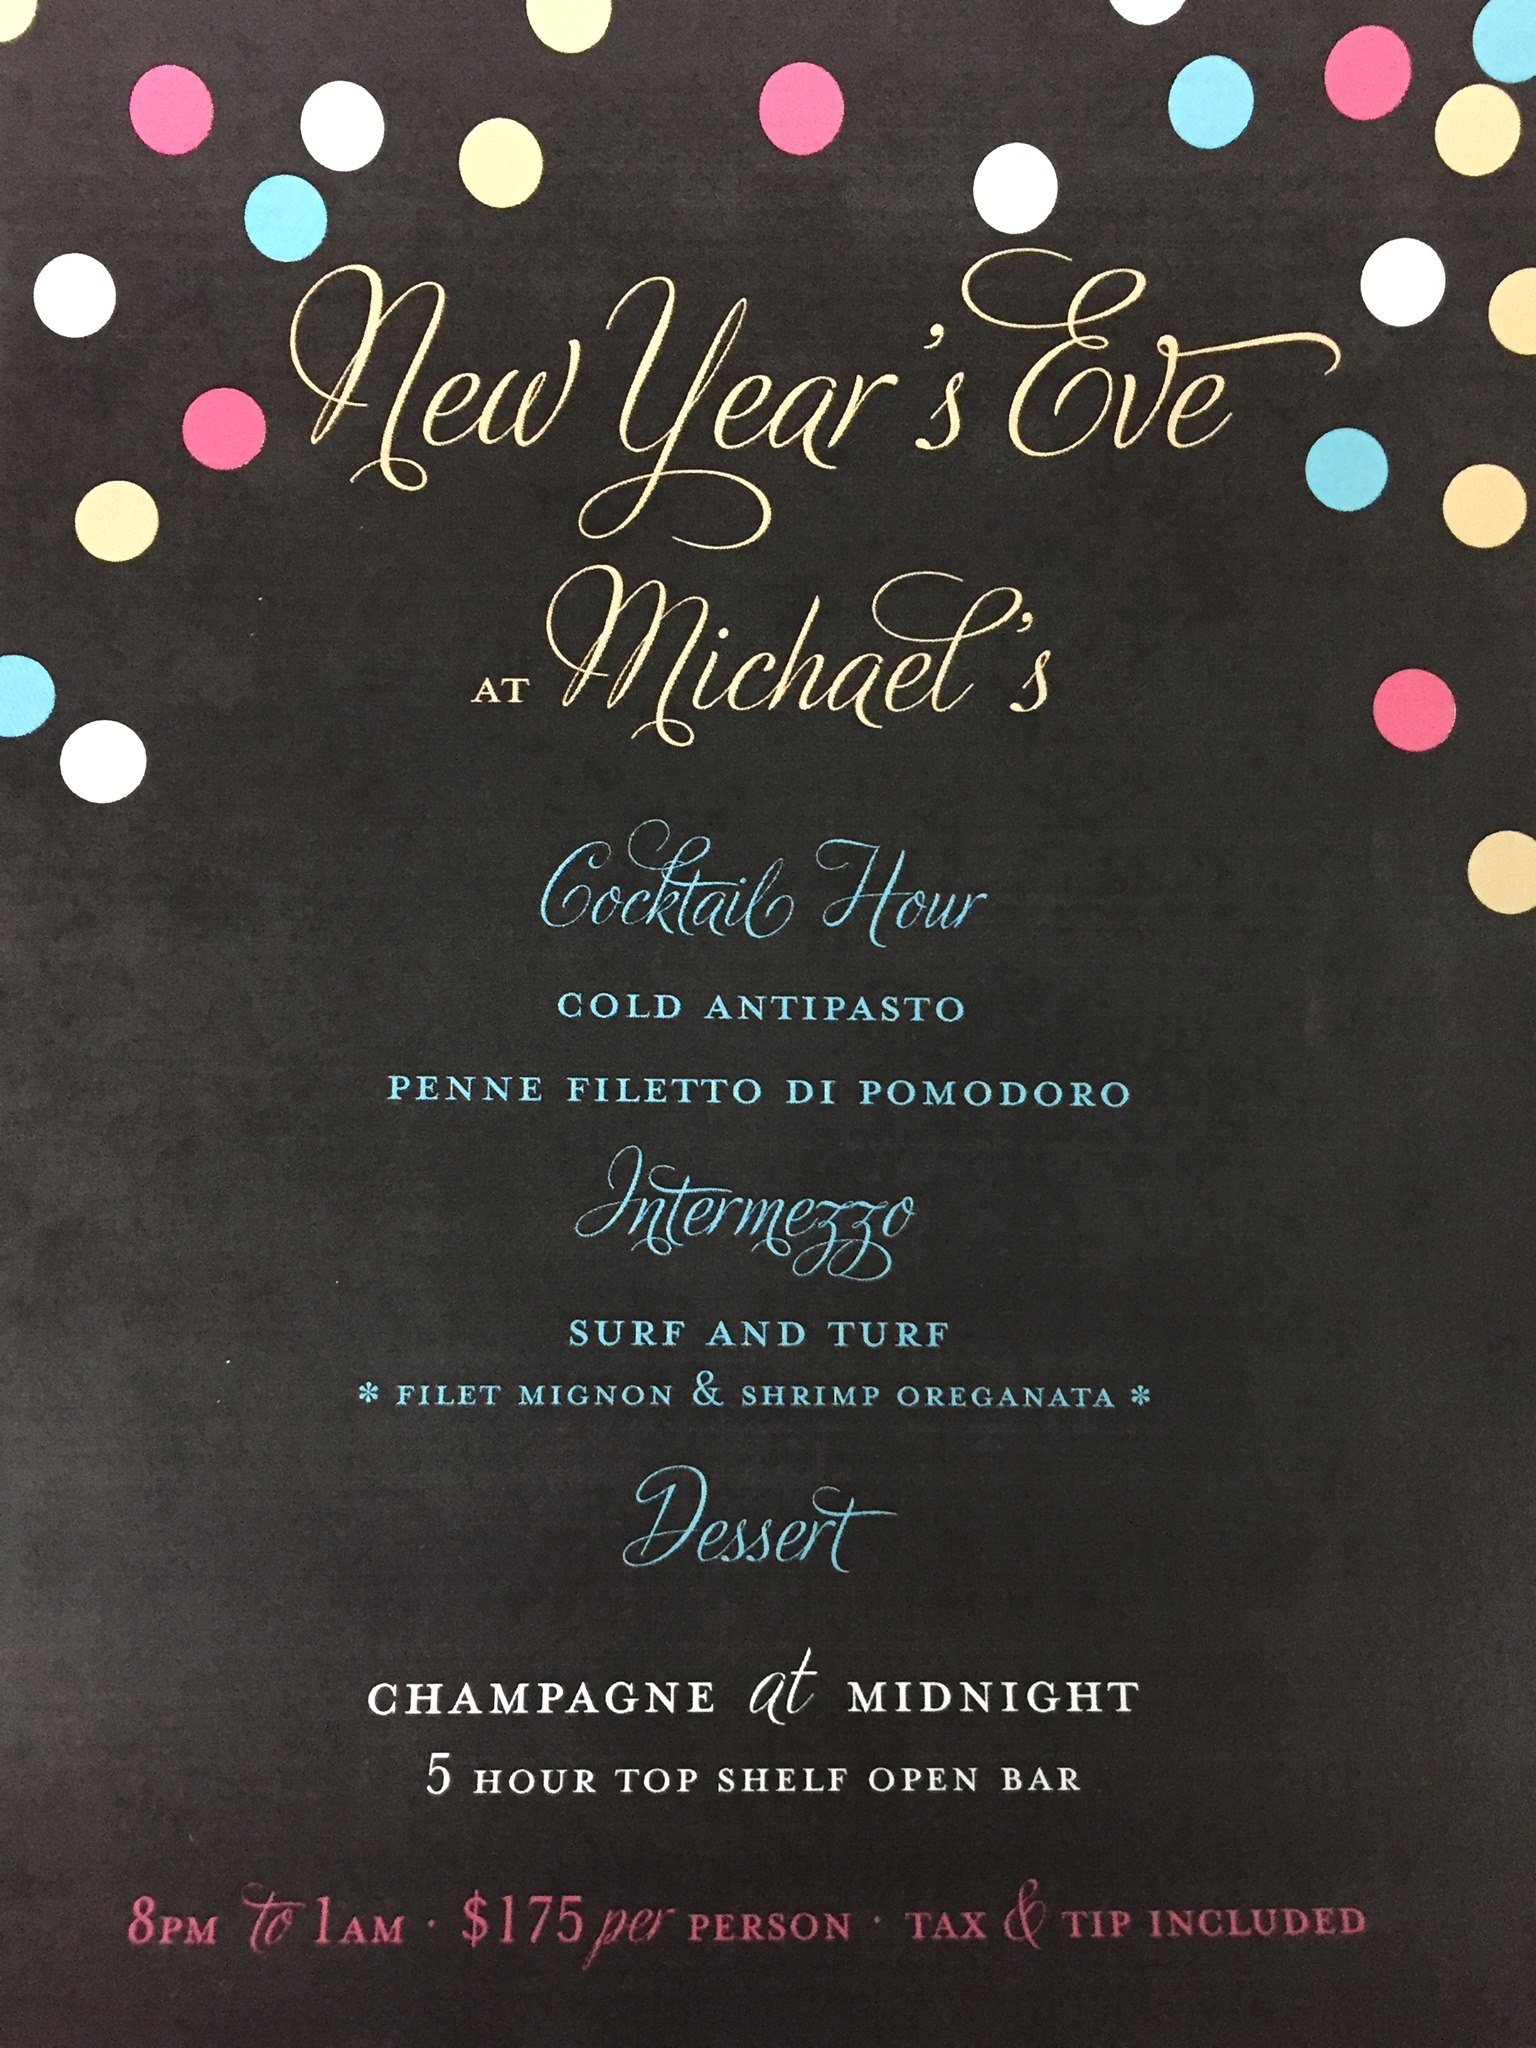 New Year's Eve
AT Michael's
Cocktail Hour
COLD ANTIPASTO
PENNE FILETTO DI POMODORO
Intermezzo
SURF AND TURF
* FILET MIGNON & SHRIMP OREGANATA *
Dessert
CHAMPAGNE at MIDNIGHT
5 HOUR TOP SHELF OPEN BAR
8PM to 1AM · $175 per PERSON · TAX & TIP INCLUDED